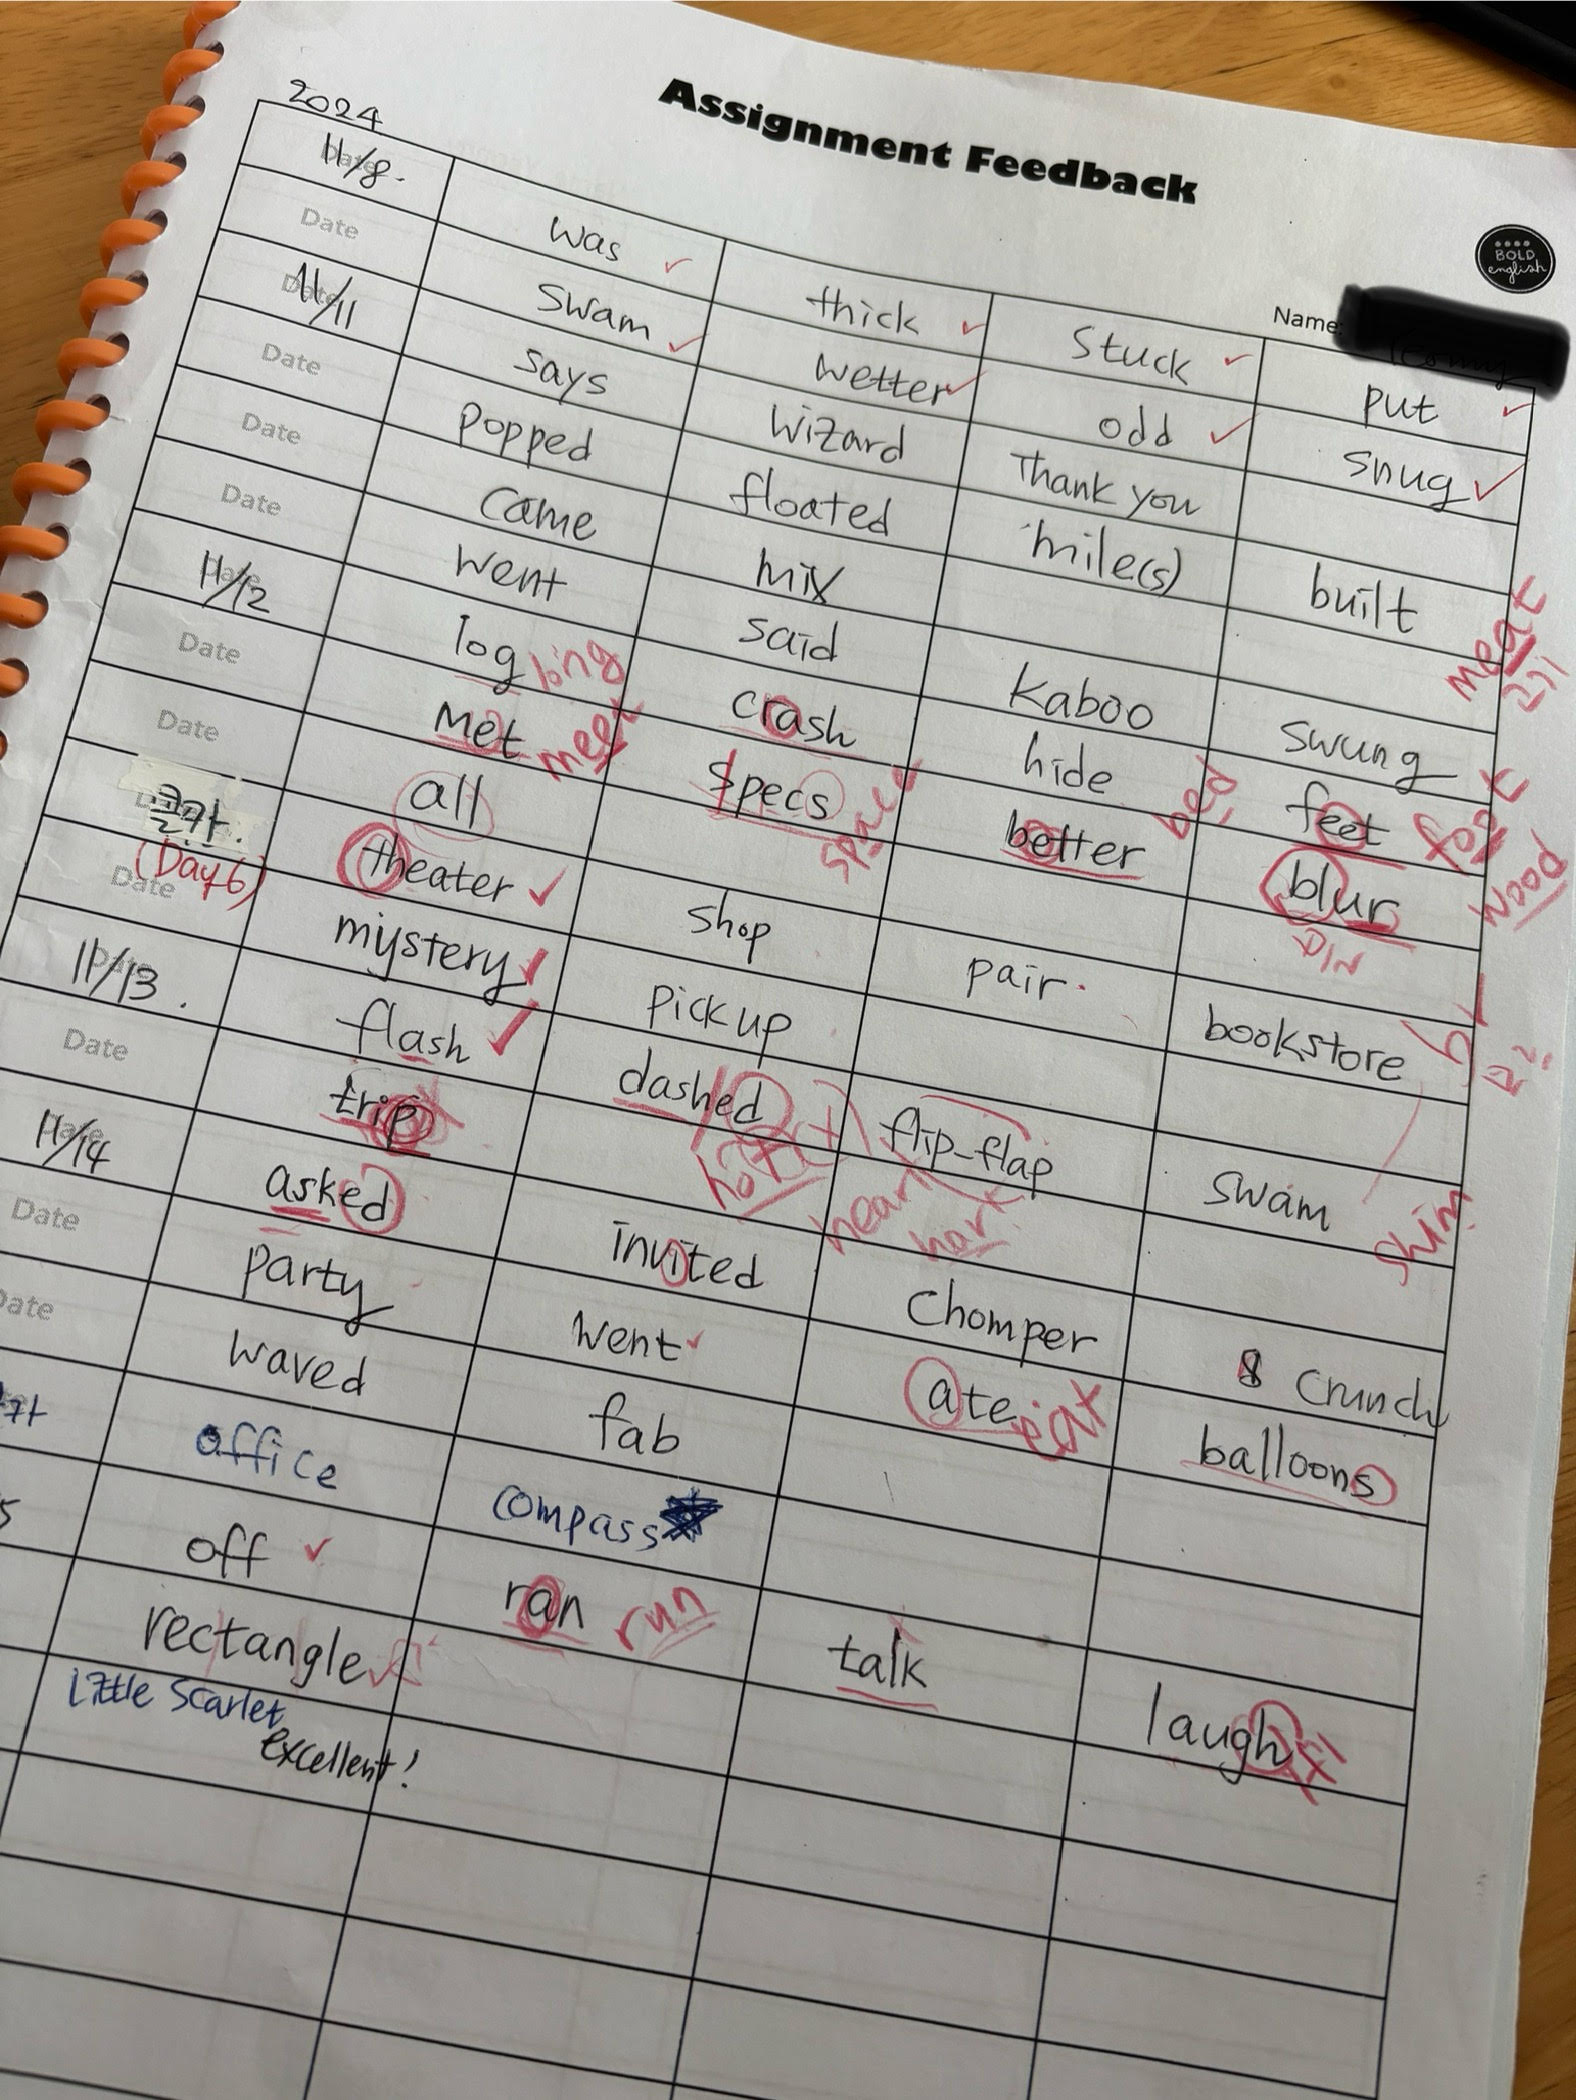 Assignment Feedback
BOLD
english
Name:
2024
11/8.
was thick stuck put
Date
swam wetter odd snug
11/11
says wizard Thank you
Date
popped floated mile(s) built
Date
came mix
Date
went said Kaboo swung
11/12
log long crash hide feet foot
meat
고기
Date
Met meet specs space better bed blur wood
Date
all
추가.
theater shop pair bookstore
(Day6)
Date
mystery pick up
11/13.
flash dashed flip-flap swam
hear hark
swim
Date
trip
11/14
asked invited Chomper 8 crunch
Date
party went ate eat balloons
Date
waved fab
office compass
off ran run talk laugh
rectangle
Little Scarlet
excellent!